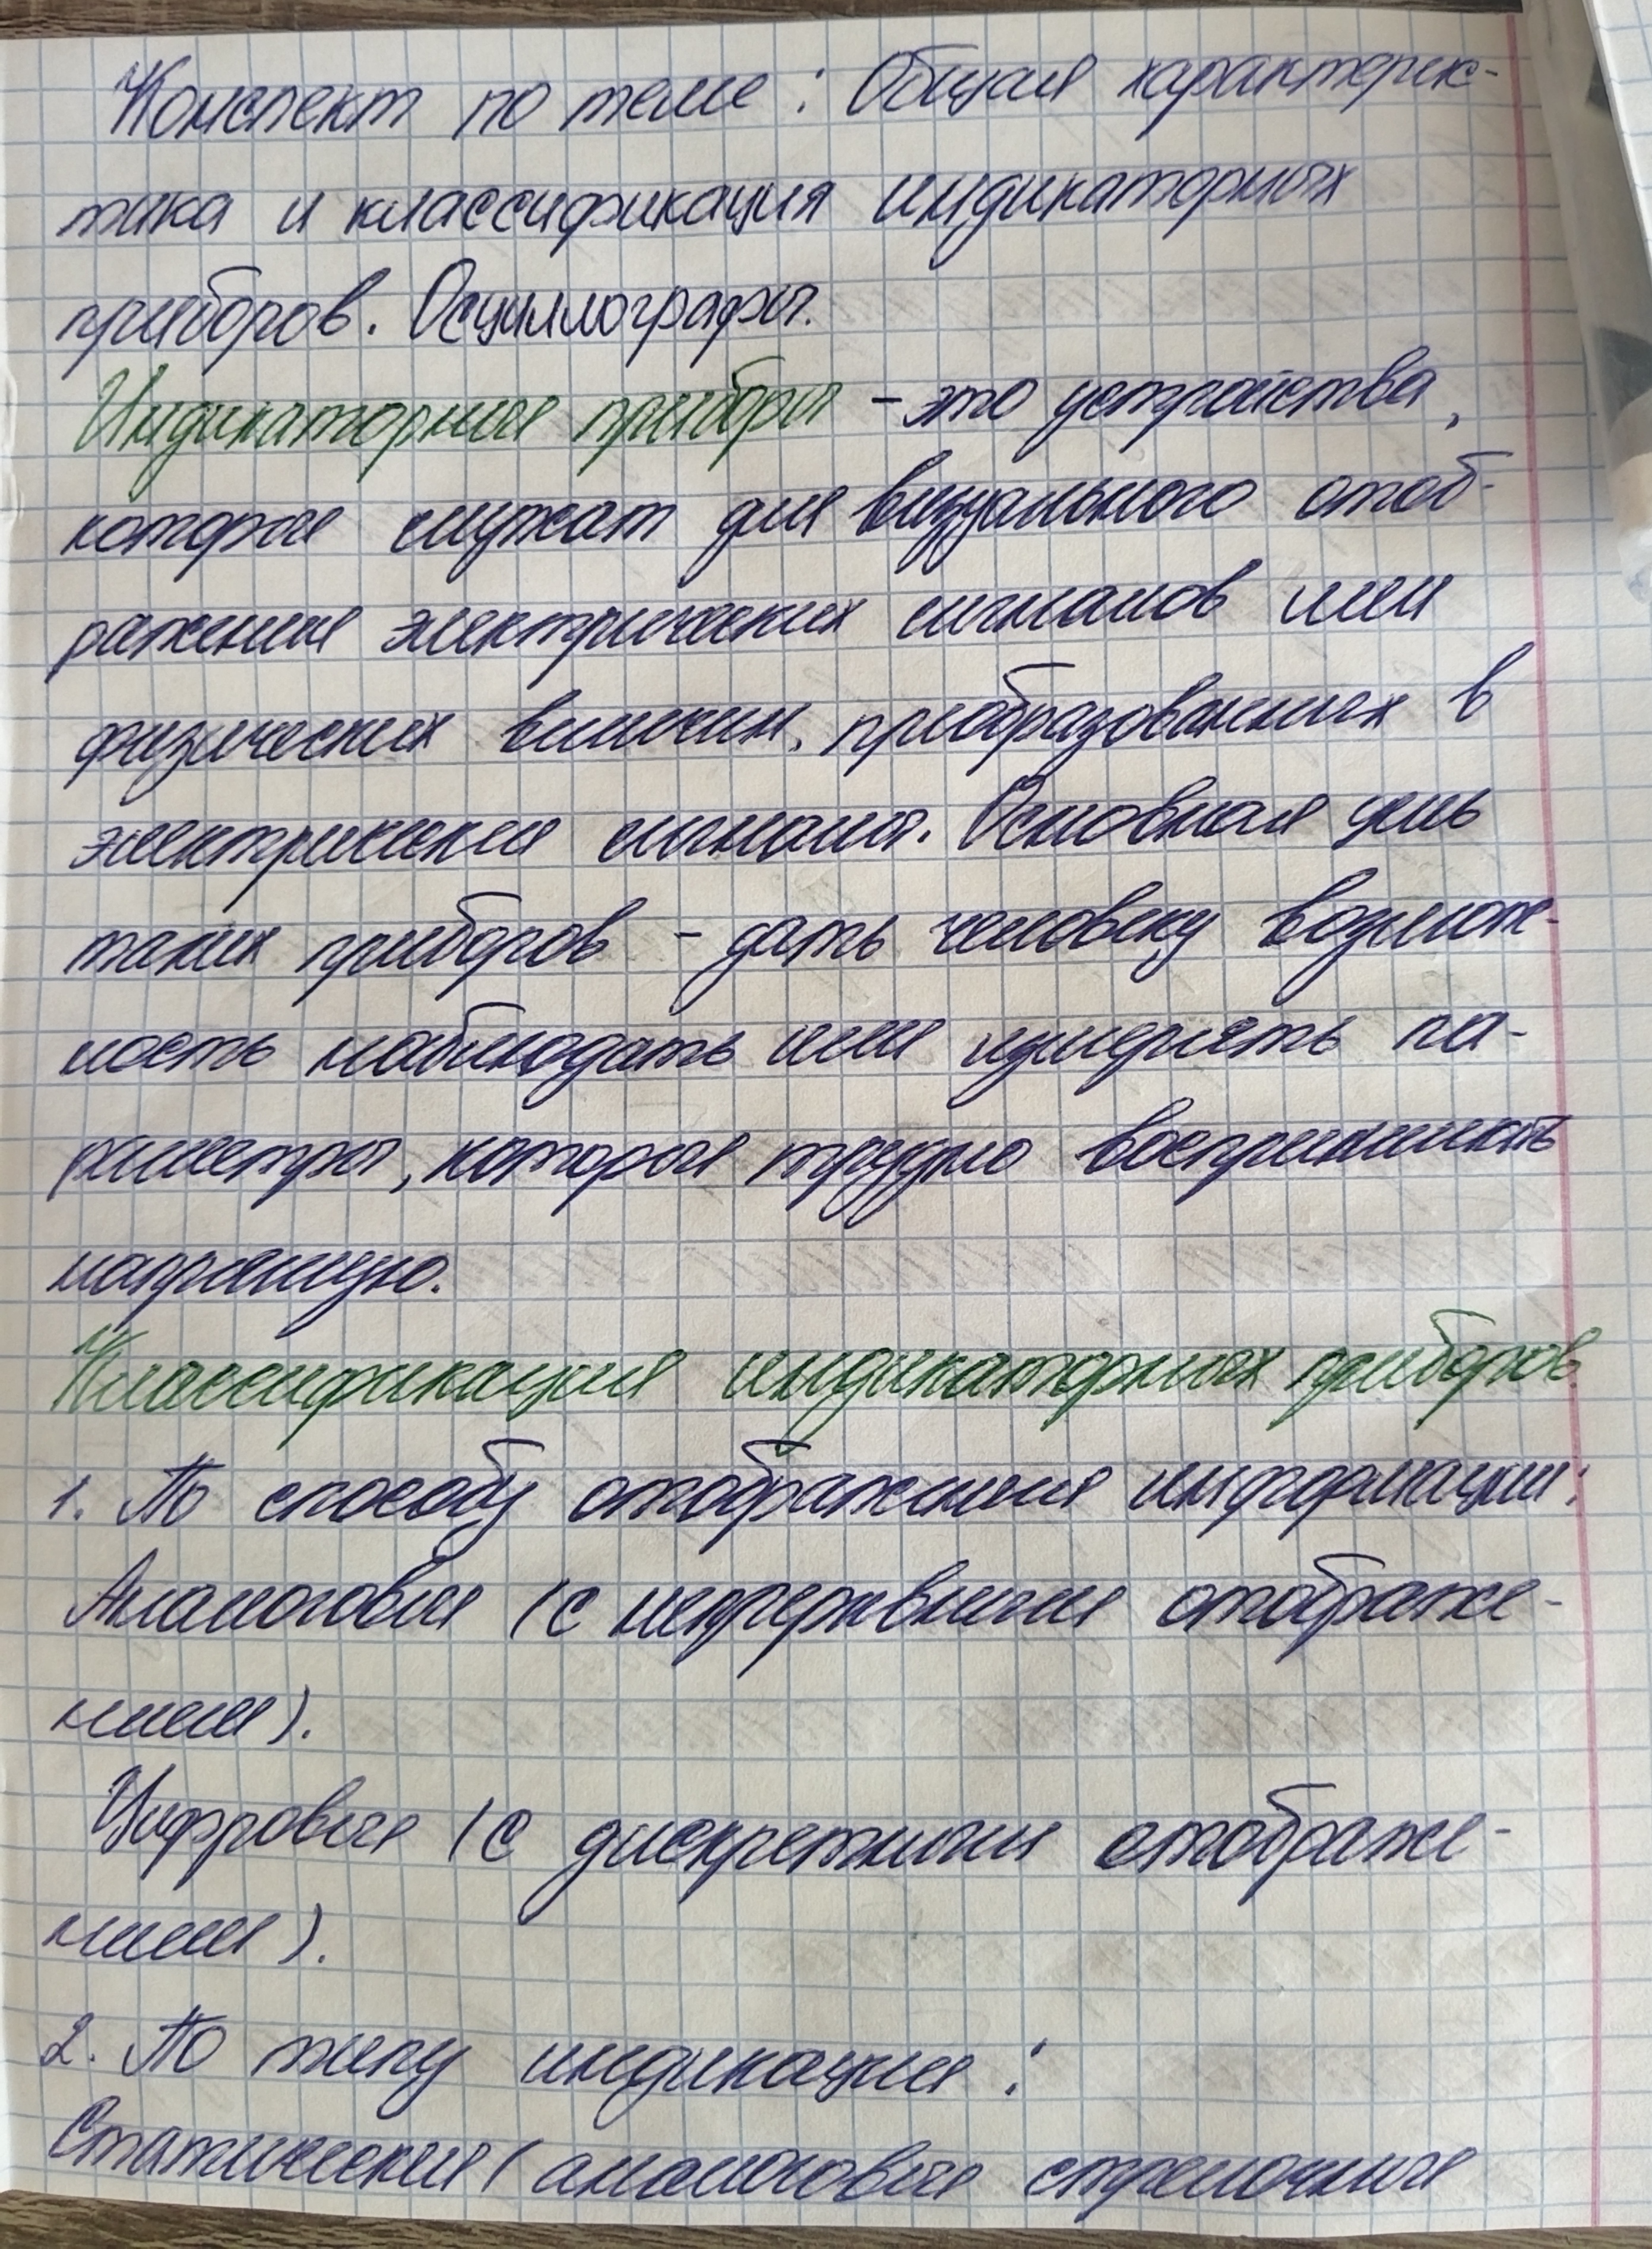 Конспект по теме: Общая характерис-
тика и классификация индикаторных
приборов. Осциллографы.
Индикаторные приборы - это устройства,
которые служат для визуального отоб-
ражения электрических сигналов или
физических величин, преобразованных в
электрические сигналы. Основная цель
таких приборов - дать человеку возмож-
ность наблюдать или измерять па-
раметры, которые трудно воспринимать
напрямую.
Классификация индикаторных приборов.
1. По способу отображения информации:
Аналоговые (с непрерывным отображе-
нием).
Цифровые (с дискретным отображе-
нием).
2. По типу индикации:
Статические (аналоговые стрелочные